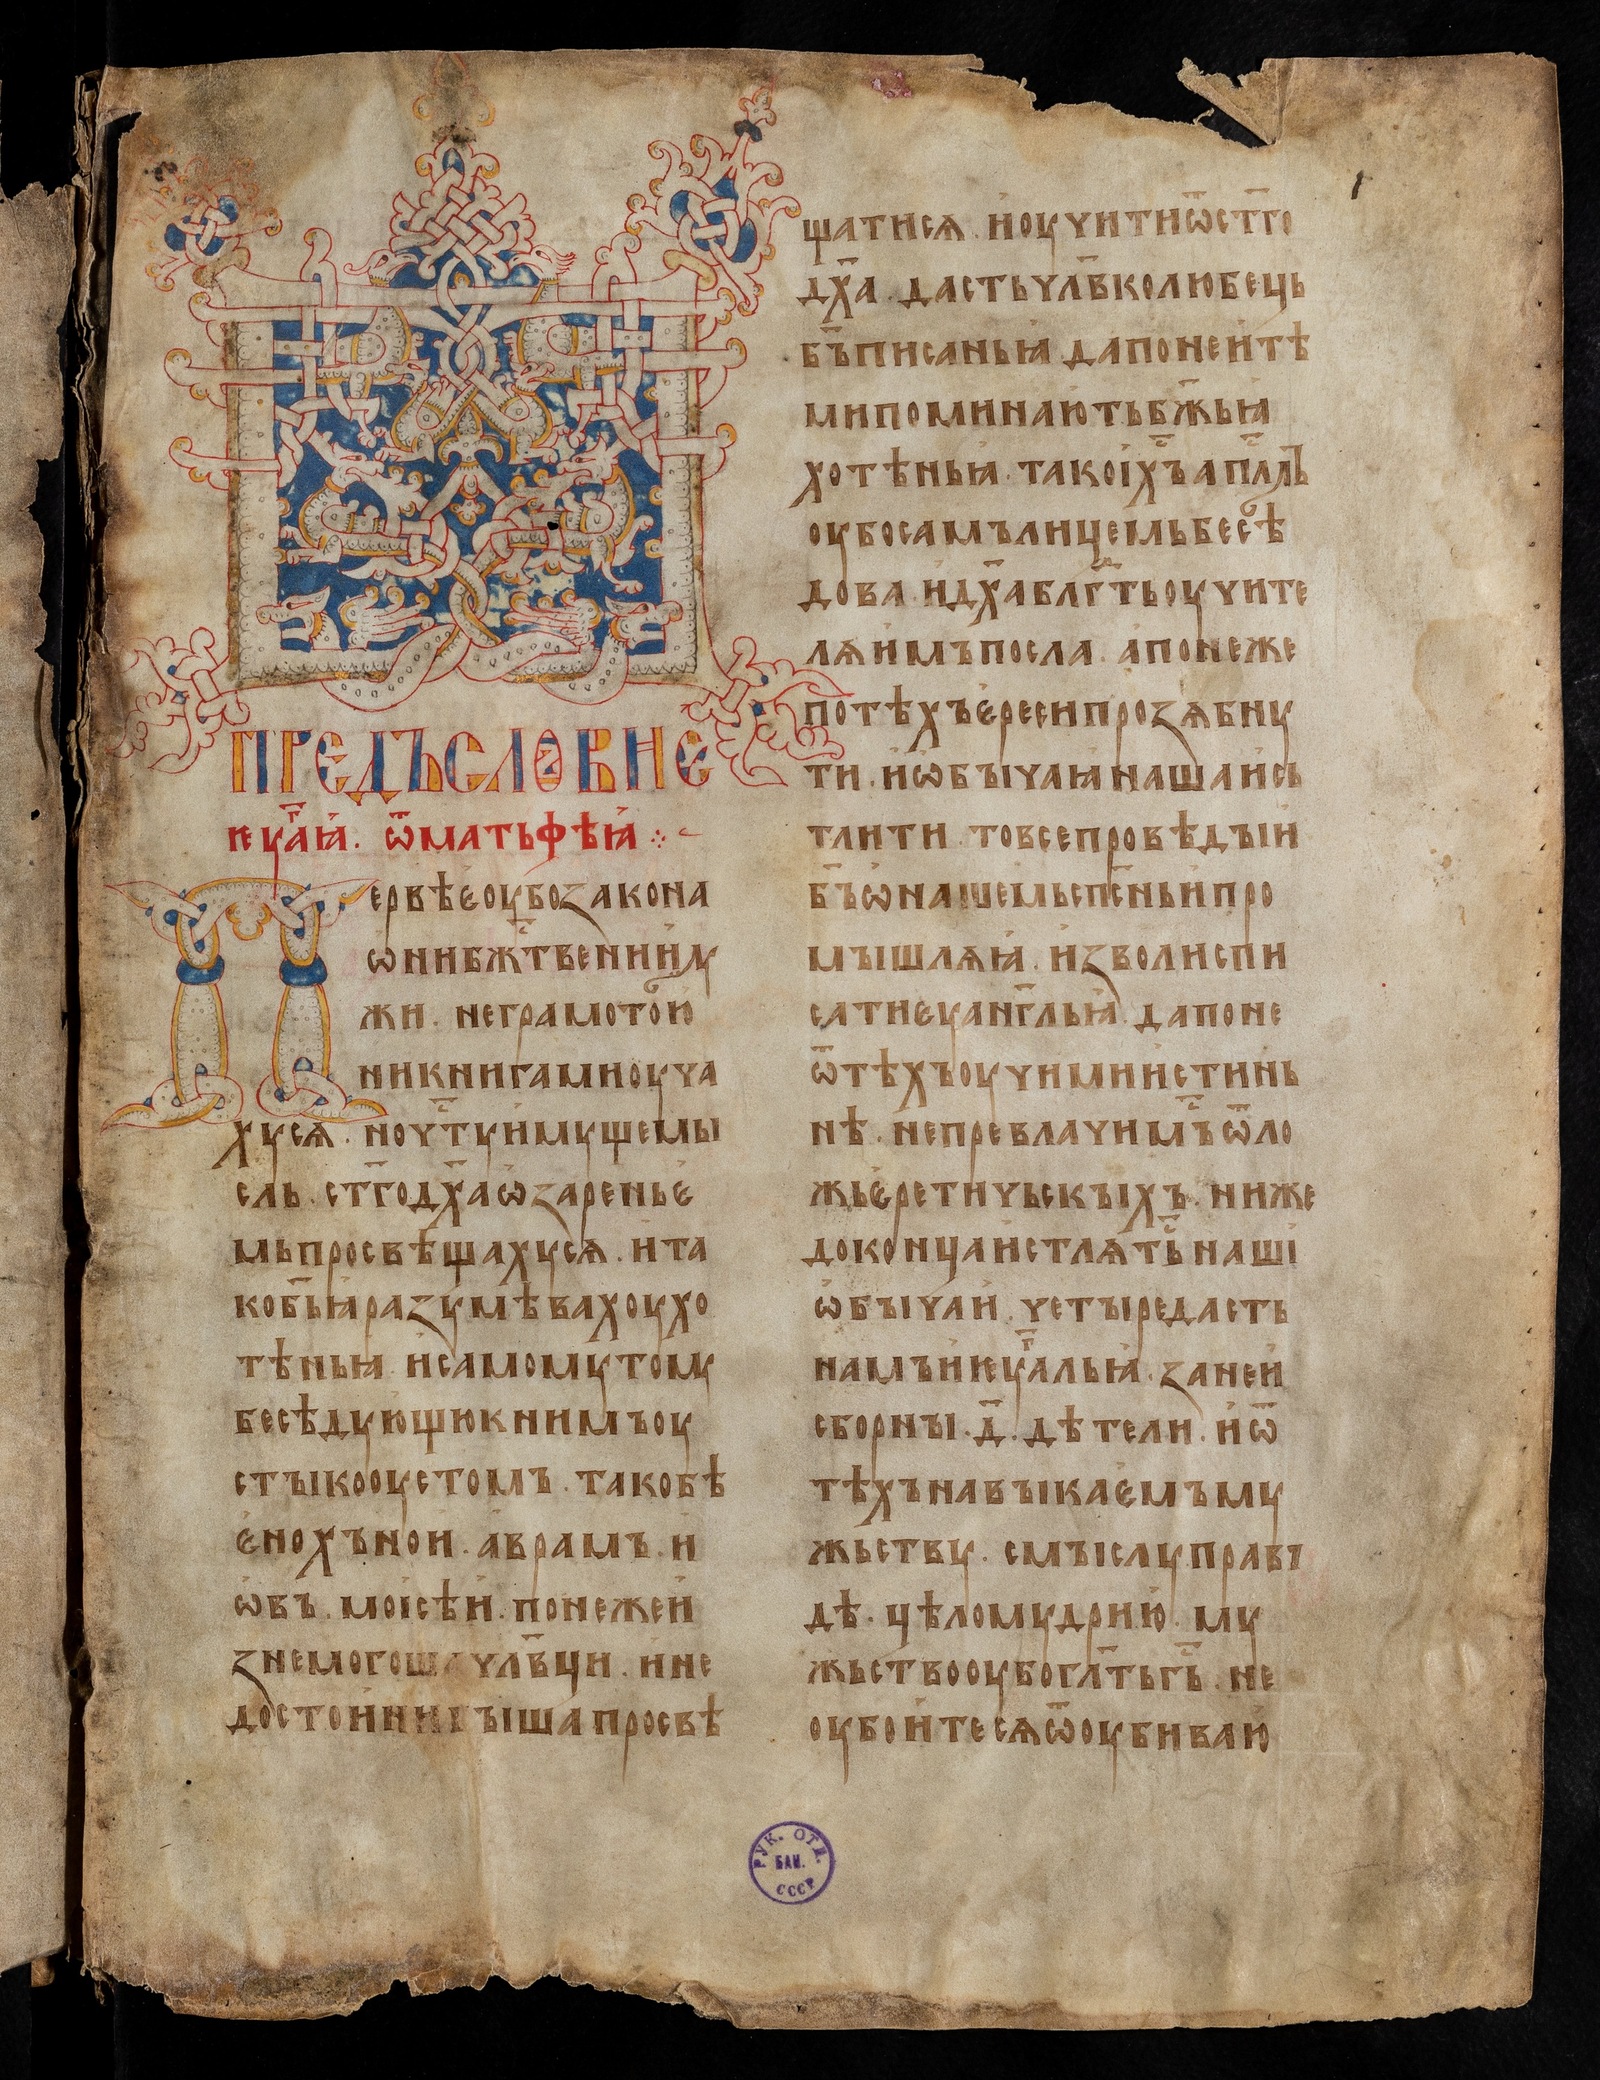 предъсловие
еѵⷢ҇аиꙗ . ѿ матьфѣꙗ
Первѣѥ оубо закона
ѡни бж҇твении мѹ
жи . не грамотою
ни книгами оуча
хуся . но ч҇ту имуще мы
сль . ст҃го дх҃а ѡзареньѥ
мь просвѣщахуся . и та
ко б҃ьꙗ разумѣваху хо
тѣньꙗ . и самому тому
бесѣдующю к нимъ оу
сты ко оустомъ . тако бѣ
ѥнохъ ной . аврамъ . и
ѡвъ . моісѣй . понеже и
знемогоша чл҃вци . и не
достойни быша просвѣ
щатися . и оучити ѿ ст҃го
дх҃а . дасть чл҃вколюбець
б҃ъ писаньꙗ да понеи тѣ
ми поминають бж҃ьꙗ
хотѣньꙗ . тако і х҇ъ ап҇лмъ
оубо самъ лицемь бесѣ
дова . и дх҃а блг҇ть оучите
ля имъ посла . а понеже
по тѣхъ ѥреси прозябну
ти . и ѡбычаꙗ наша ись
тлити . то все провѣдъıи
б҃ъ ѡ нашемь сп҃сньи про
мышляꙗ . изволи спи
сати ѥѵанг҃льꙗ . да поне
ѿ тѣхъ оучими истинь
нѣ . не превлачим҇ъ ѿ ло
жь ѥретичьскыхъ . ниже
до конца истлять҇ наші
ѡбычаи . четыре дасть
намъ и еѵⷢ҇альꙗ . зане и
сборны . д҃ . дѣтели . и ѿ
тѣхъ навыкаѥмъ му
жьству . смыслу правъ
дѣ . цѣломудрию . му
жьство оубо гл҃ть г҇ь . не
оубоитеся ѿ оубиваю
РУК. ОТД.
БАН.
СССР